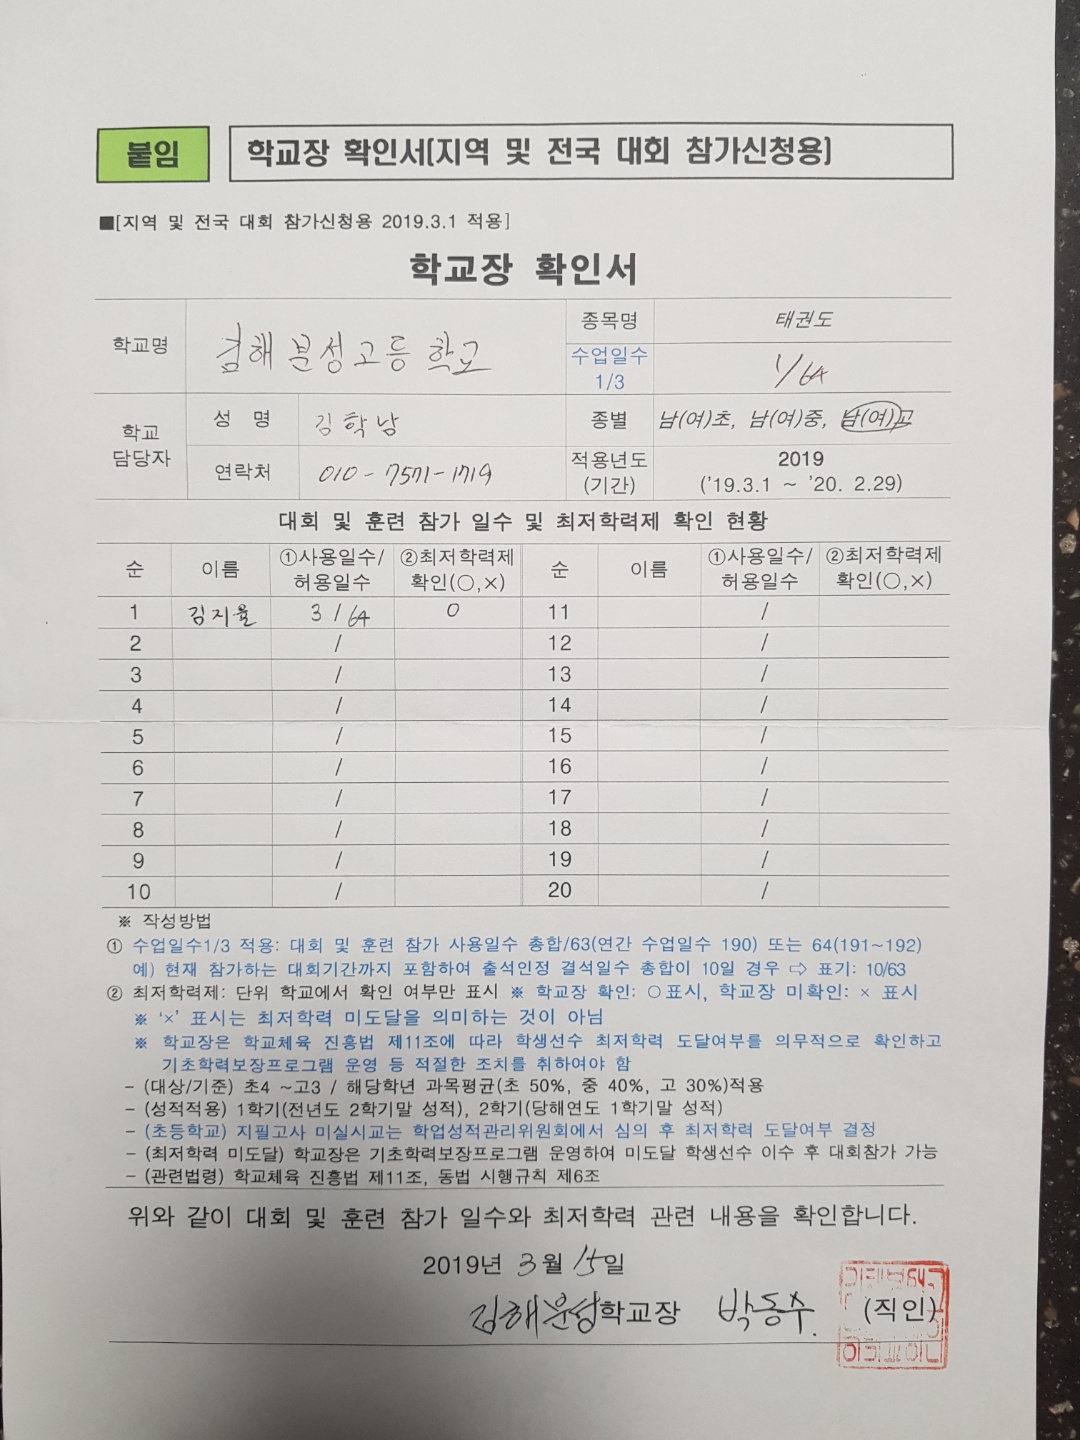 붙임 학교장 확인서(지역 및 전국 대회 참가신청용)
■[지역 및 전국 대회 참가신청용 2019.3.1 적용]
학교장 확인서
학교명 김해분성고등학교 종목명 태권도
수업일수 1/3 1/64
학교 담당자 성 명 김학남 종별 남(여)초, 남(여)중, 남(여)고
연락처 010-7571-1719 적용년도 (기간) 2019 ('19.3.1 ~ '20. 2.29)
대회 및 훈련 참가 일수 및 최저학력제 확인 현황
순 이름 ①사용일수/허용일수 ②최저학력제 확인(○,×) 순 이름 ①사용일수/허용일수 ②최저학력제 확인(○,×)
1 김지율 3 / 64 O 11 /
2 / 12 /
3 / 13 /
4 / 14 /
5 / 15 /
6 / 16 /
7 / 17 /
8 / 18 /
9 / 19 /
10 / 20 /
※ 작성방법
① 수업일수1/3 적용: 대회 및 훈련 참가 사용일수 총합/63(연간 수업일수 190) 또는 64(191~192)
예) 현재 참가하는 대회기간까지 포함하여 출석인정 결석일수 총합이 10일 경우 ⇨ 표기: 10/63
② 최저학력제: 단위 학교에서 확인 여부만 표시 ※ 학교장 확인: ○표시, 학교장 미확인: × 표시
※ '×' 표시는 최저학력 미도달을 의미하는 것이 아님
※ 학교장은 학교체육 진흥법 제11조에 따라 학생선수 최저학력 도달여부를 의무적으로 확인하고
기초학력보장프로그램 운영 등 적절한 조치를 취하여야 함
- (대상/기준) 초4 ~고3 / 해당학년 과목평균(초 50%, 중 40%, 고 30%)적용
- (성적적용) 1학기(전년도 2학기말 성적), 2학기(당해연도 1학기말 성적)
- (초등학교) 지필고사 미실시교는 학업성적관리위원회에서 심의 후 최저학력 도달여부 결정
- (최저학력 미도달) 학교장은 기초학력보장프로그램 운영하여 미도달 학생선수 이수 후 대회참가 가능
- (관련법령) 학교체육 진흥법 제11조, 동법 시행규칙 제6조
위와 같이 대회 및 훈련 참가 일수와 최저학력 관련 내용을 확인합니다.
2019년 3월 15일
김해분성학교장 박동수. (직인)